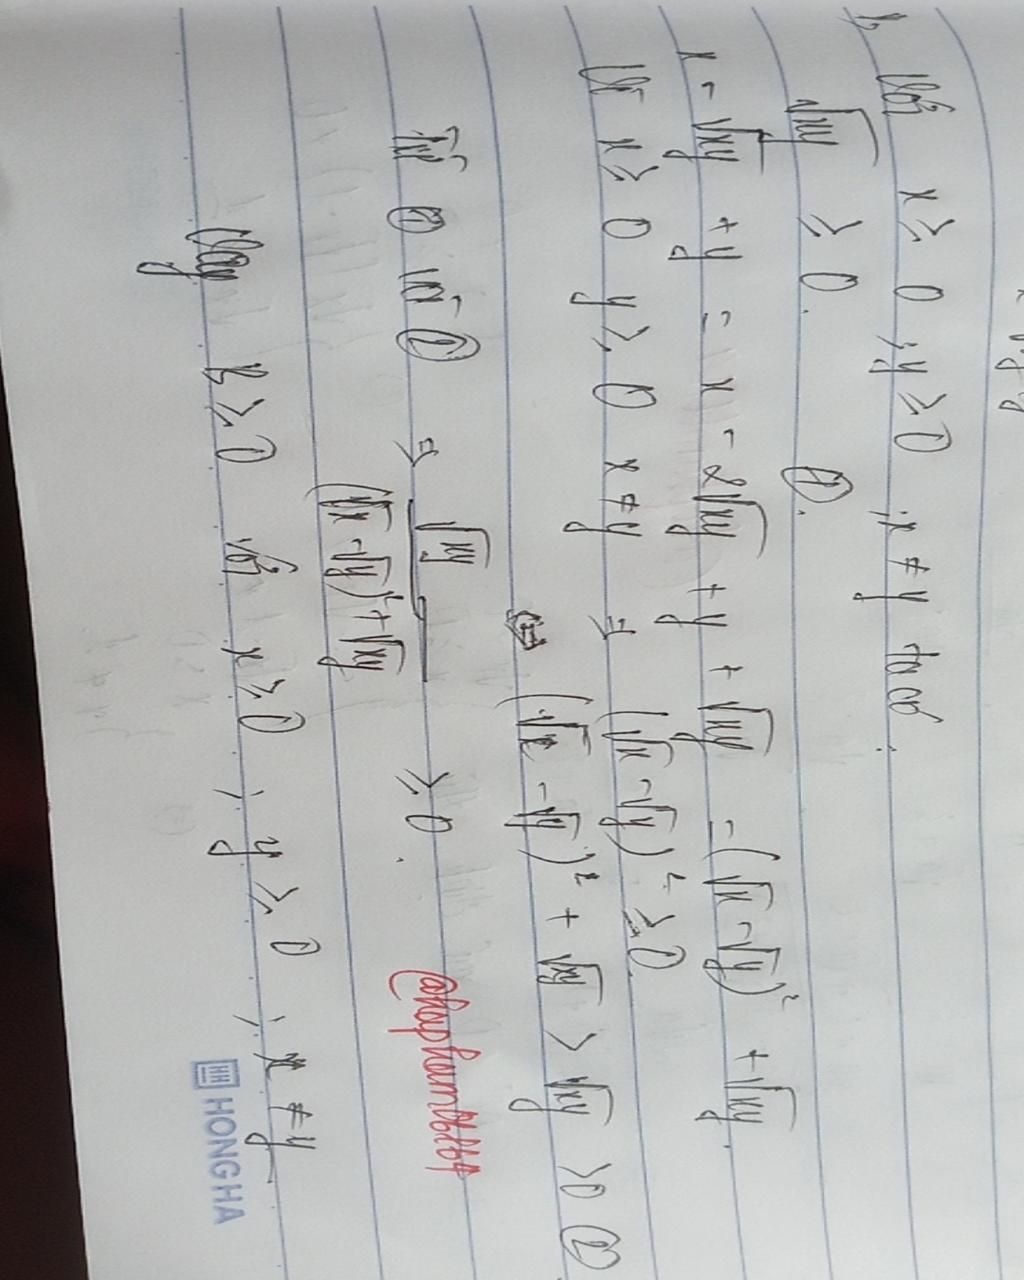 b, Với x ≥ 0 ; y ≥ 0 ; x ≠ y ta có :
√xy ≥ 0 . ①.
x - √xy + y = x - 2√xy + y + √xy = (√x - √y)² + √xy .
Vì x ≥ 0 y ≥ 0 x ≠ y ⇒ (√x - √y)² ≥ 0
(√x - √y)² + √xy > √xy > 0 ②
Từ ① và ② ⇒ √xy / (√x - √y)² + √xy ≥ 0 .
Vậy B ≥ 0 với x ≥ 0 , y ≥ 0 , x ≠ y
HH HONGHA